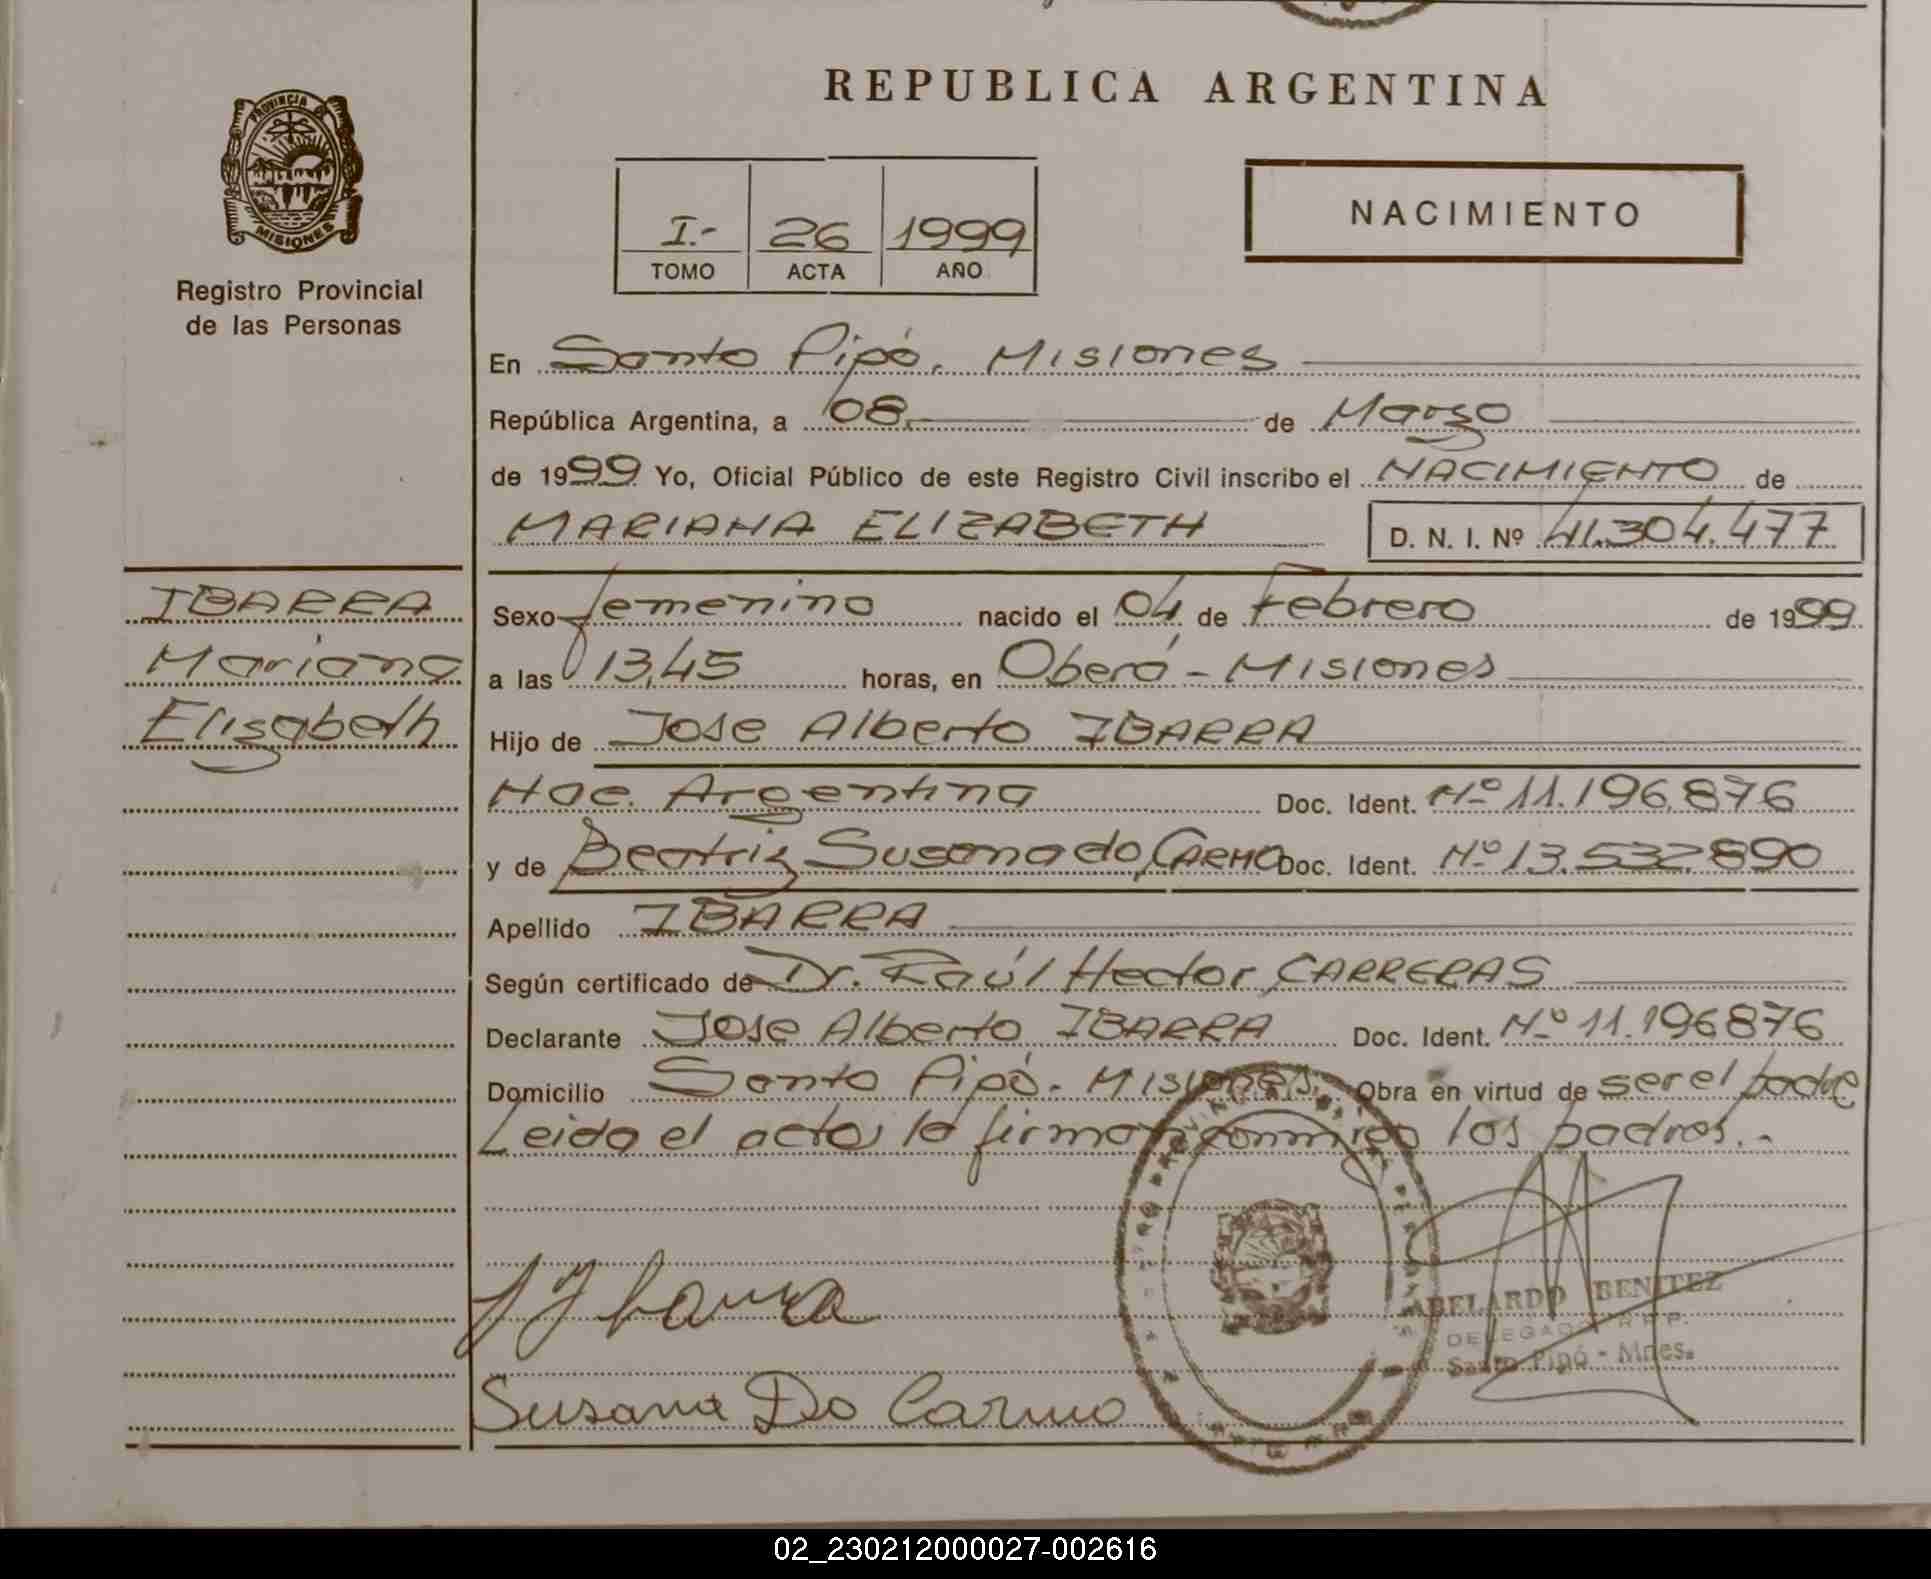 REPUBLICA ARGENTINA
PROVINCIA
MISIONES
Registro Provincial
de las Personas
I.- 26 1999
TOMO ACTA AÑO
NACIMIENTO
En Santo Pipó. Misiones
República Argentina, a 08 de Marzo
de 1999 Yo, Oficial Público de este Registro Civil inscribo el NACIMIENTO de
MARIANA ELIZABETH D. N. I. Nº 41.304.477
IBARRA
Mariana
Elisabeth
Sexo femenino nacido el 04 de Febrero de 1999
a las 13,45 horas, en Oberá - Misiones
Hijo de Jose Alberto IBARRA
Nac. Argentina Doc. Ident. Nº 11.196.876
y de Beatriz Susana do CARMO Doc. Ident. Nº 13.532.890
Apellido IBARRA
Según certificado de Dr. Raúl Hector CARRERAS
Declarante Jose Alberto IBARRA Doc. Ident. Nº 11.196876
Domicilio Santo Pipó - Misiones. Obra en virtud de ser el padre
Leida el acta, la firman conmigo los padres.-
Susana Do Carmo
ABELARDO BENITEZ
DELEGADO R.P.P.
Santo Pipó - Mnes.
02_230212000027-002616